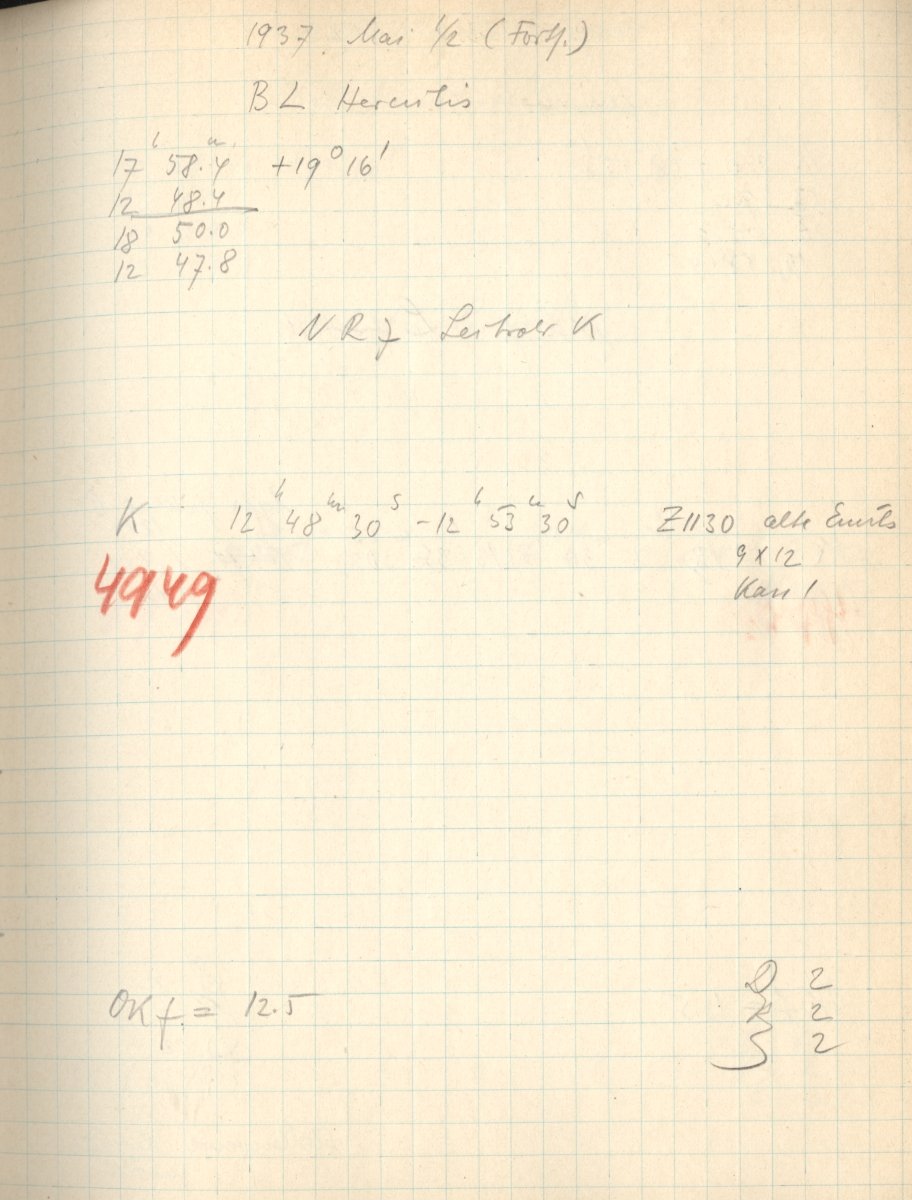 1937 Mai 1/2 (Forts.)
BL Herculis
17h 58.4m +19° 16'
12 48.4
18 50.0
12 47.8
NR 7 Leitrohr K
K 12h 48m 30s - 12h 53m 30s Z1130 alte Emuls
9 x 12
Kass 1
4949
OKf = 12.5
D 2
R 2
S 2